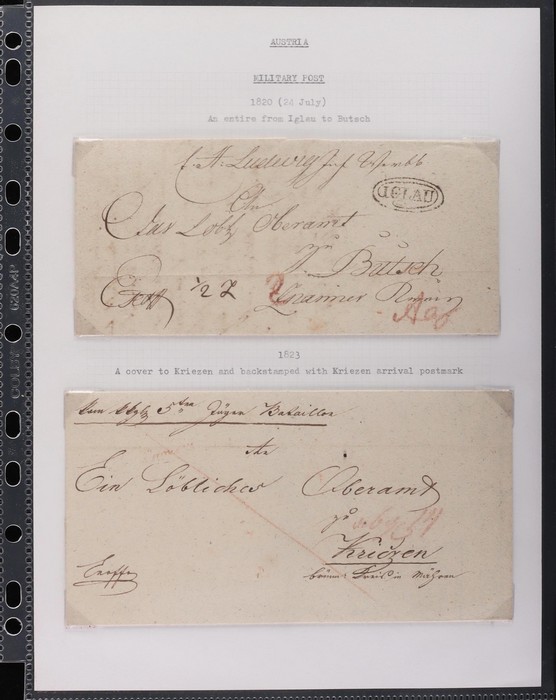 AUSTRIA
MILITARY POST
1820 (24 July)
An entire from Iglau to Butsch
Ludwig Inf
IGLAU
An
Das Löbl Oberamt
zu
Butsch
Znaimer
1823
A cover to Kriezen and backstamped with Kriezen arrival postmark
5ten Jäger Bataillon
An
Ein Löbliches Oberamt
zu
Kriczen
brünn: Kreis in Mähren